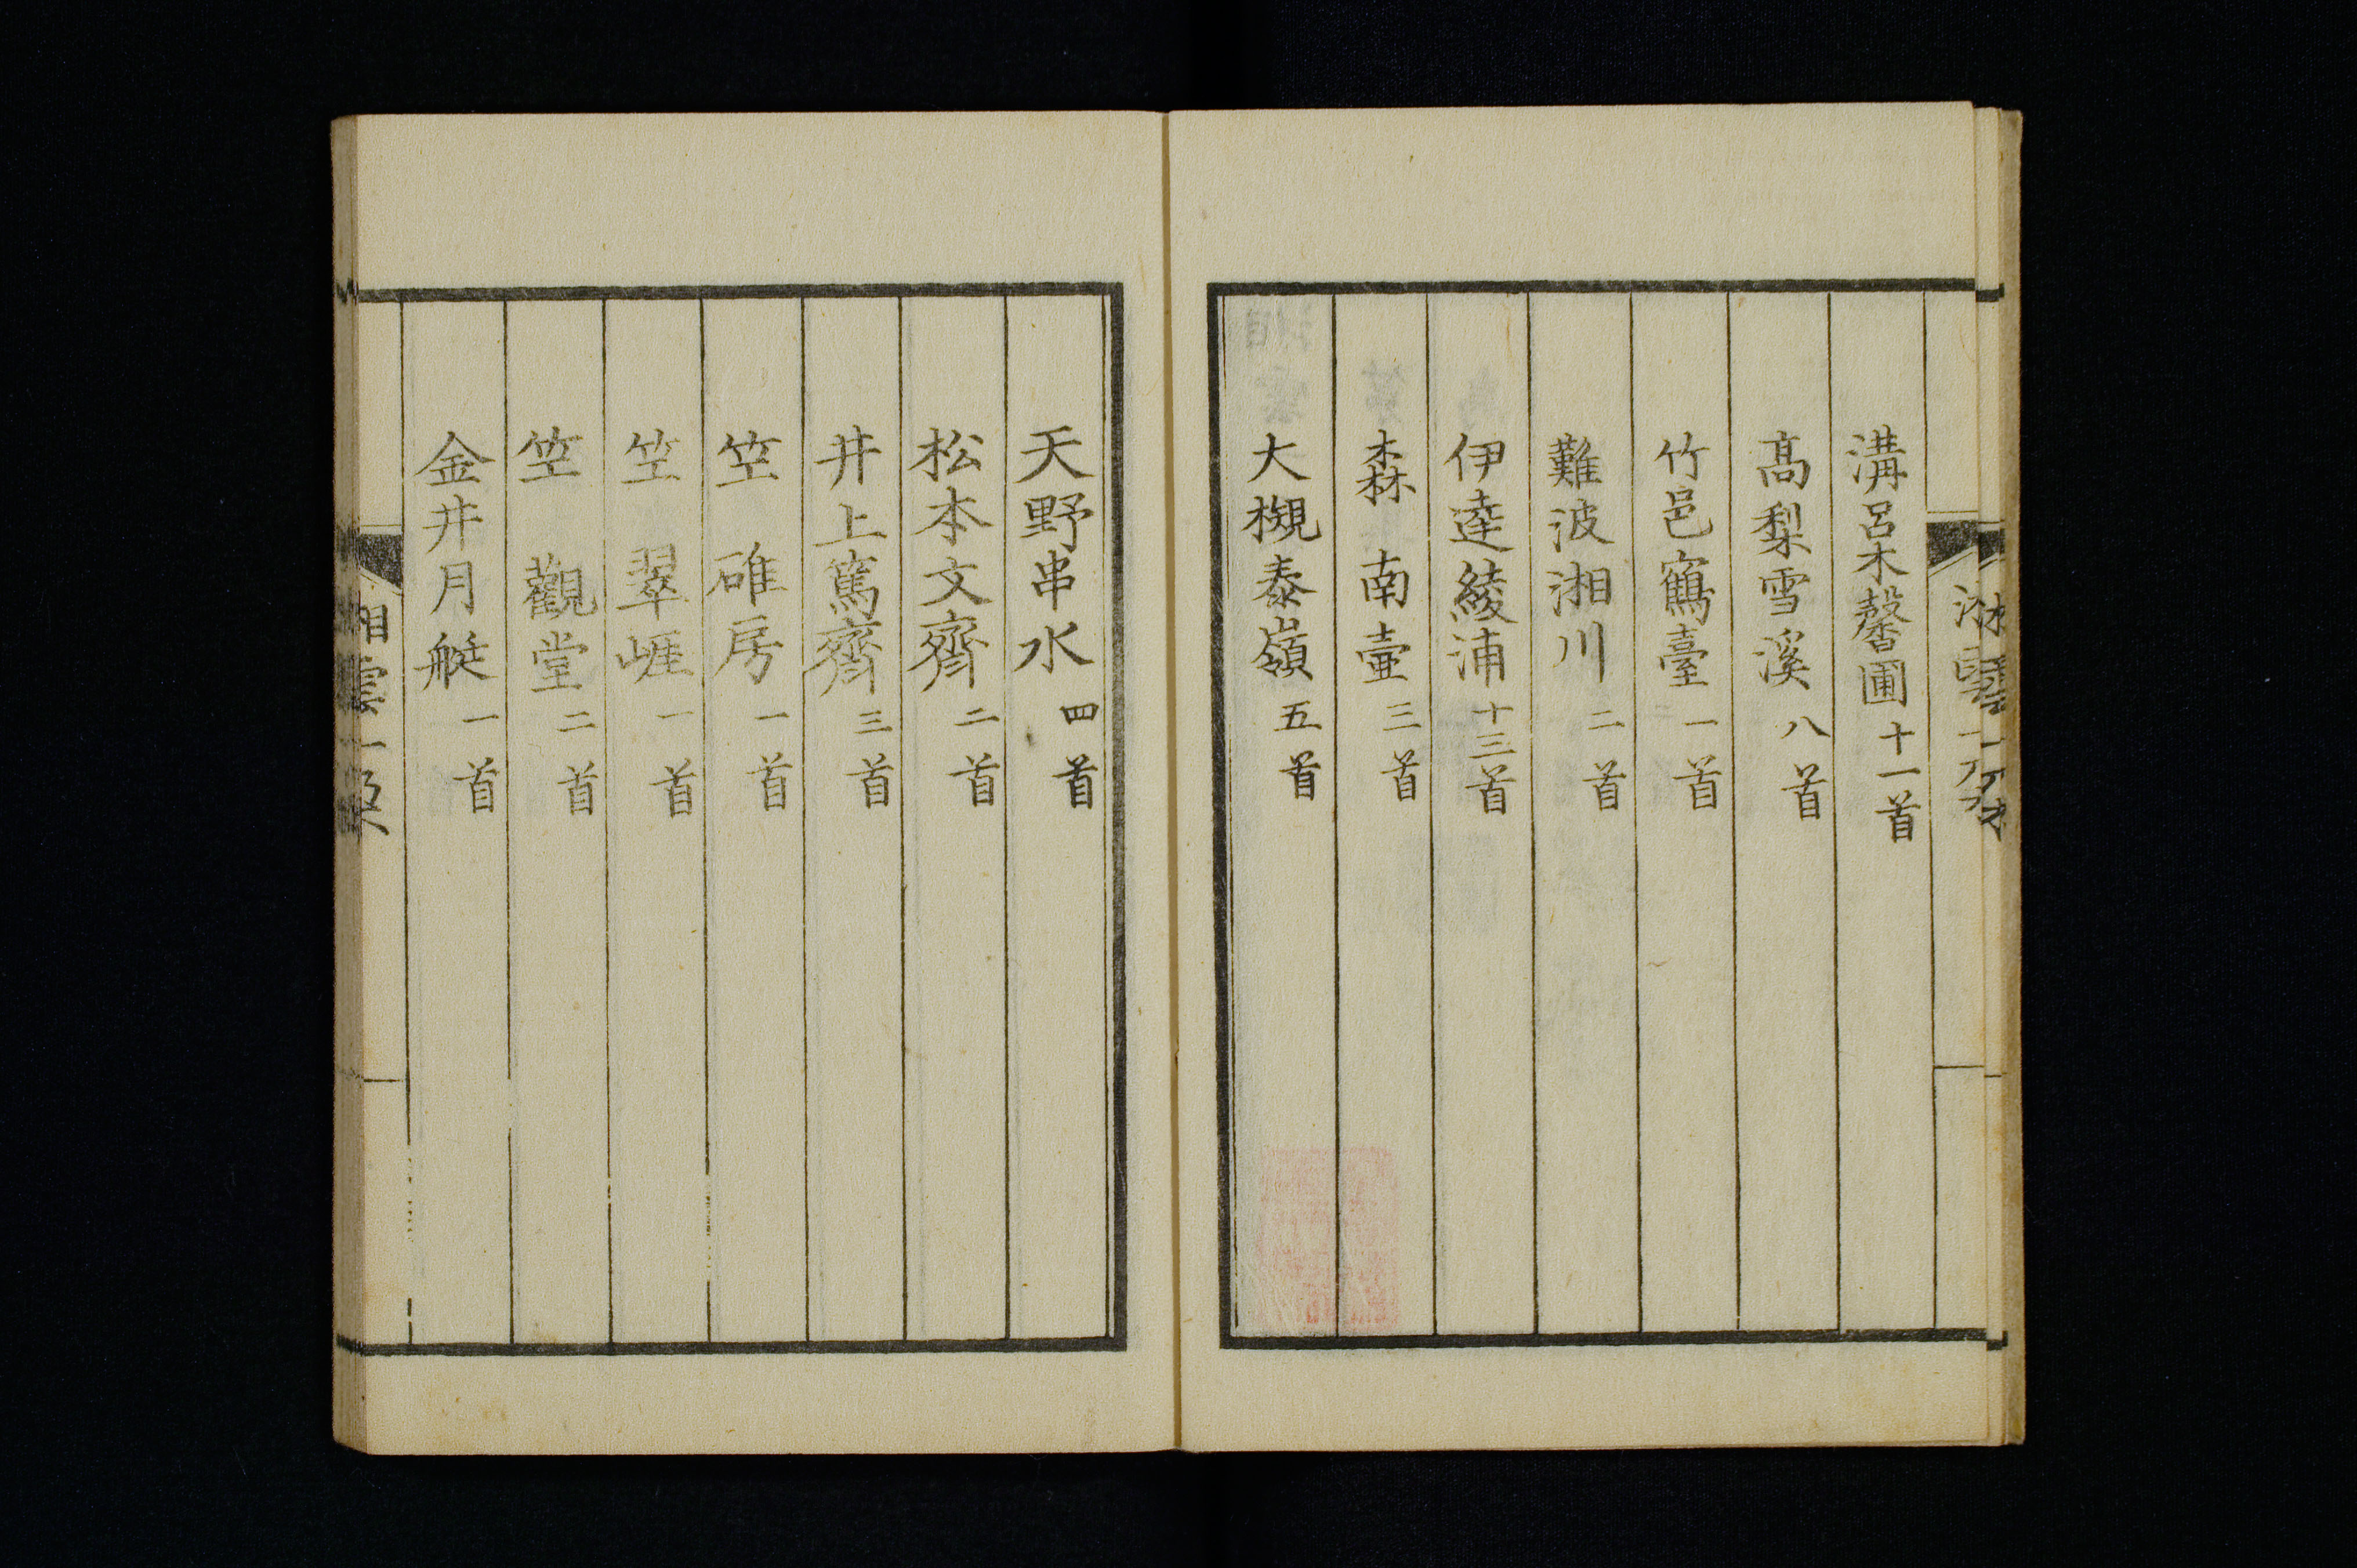 溝呂木馨圃十一首
髙梨雪溪八首
竹邑鶴臺一首
難波湘川二首
伊達綾浦十三首
森南壷三首
大槻泰嶺五首
天野串水四首
松本文齋二首
井上篤齋三首
笠碓房一首
笠翠崕一首
笠觀堂二首
金井月艇一首